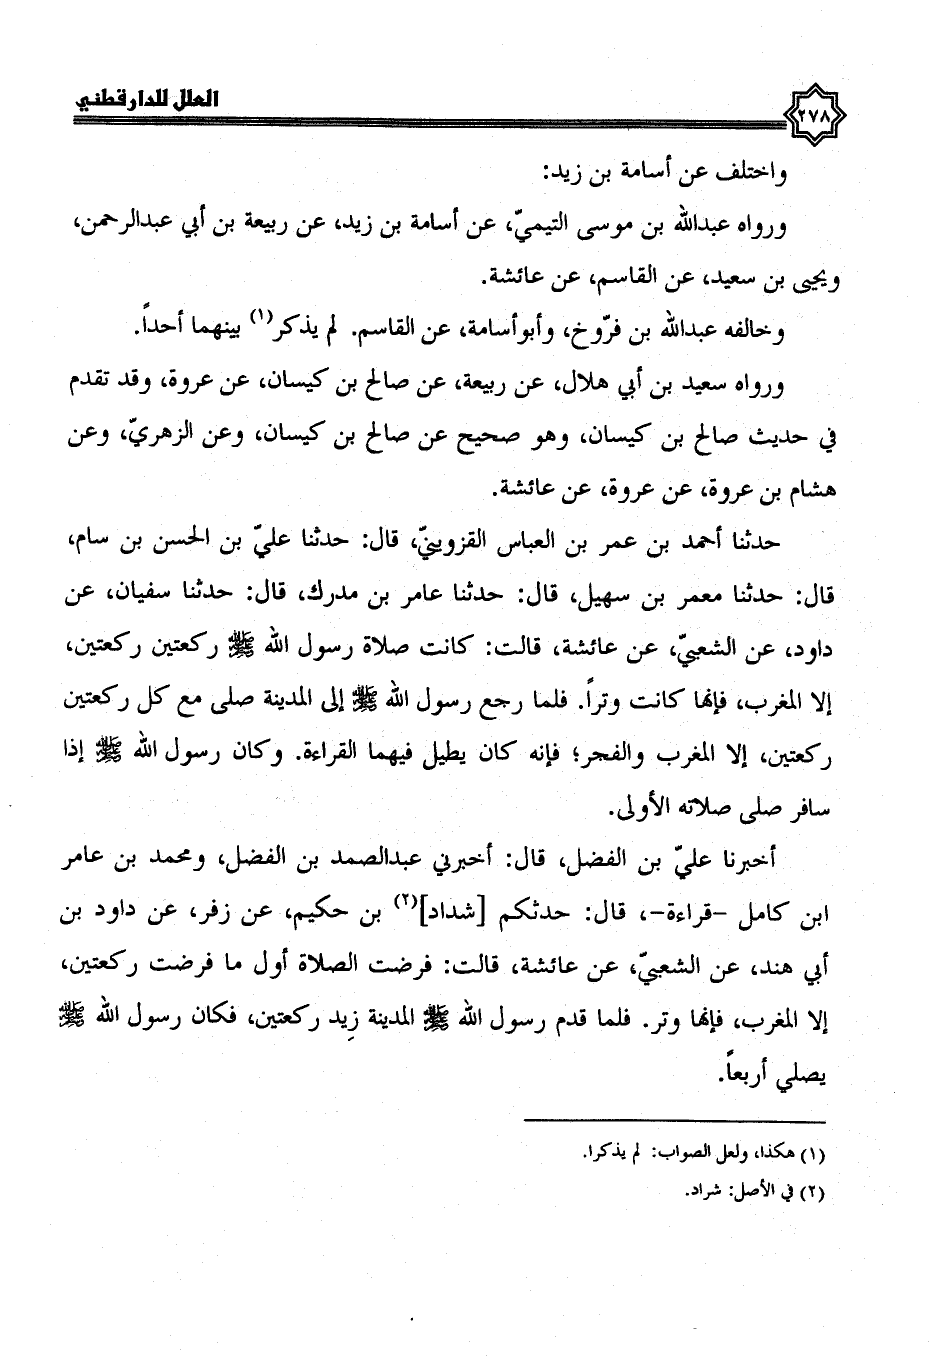 العلل للدارقطني
٢٧٨
واختلف عن أسامة بن زيد:
ورواه عبدالله بن موسى التيميّ، عن أسامة بن زيد، عن ربيعة بن أبي عبدالرحمن،
ويحيى بن سعيد، عن القاسم، عن عائشة.
وخالفه عبدالله بن فرّوخ، وأبوأسامة، عن القاسم. لم يذكر(١) بينهما أحداً.
ورواه سعيد بن أبي هلال، عن ربيعة، عن صالح بن كيسان، عن عروة، وقد تقدم
في حديث صالح بن كيسان، وهو صحيح عن صالح بن كيسان، وعن الزهريّ، وعن
هشام بن عروة، عن عروة، عن عائشة.
حدثنا أحمد بن عمر بن العباس القزوينيّ، قال: حدثنا عليّ بن الحسن بن سام،
قال: حدثنا معمر بن سهيل، قال: حدثنا عامر بن مدرك، قال: حدثنا سفيان، عن
داود، عن الشعبيّ، عن عائشة، قالت: كانت صلاة رسول الله ﷺ ركعتين ركعتين،
إلا المغرب، فإنها كانت وتراً. فلما رجع رسول الله ﷺ إلى المدينة صلى مع كل ركعتين
ركعتين، إلا المغرب والفجر؛ فإنه كان يطيل فيهما القراءة. وكان رسول الله ﷺ إذا
سافر صلى صلاته الأولى.
أخبرنا عليّ بن الفضل، قال: أخبرني عبدالصمد بن الفضل، ومحمد بن عامر
ابن كامل -قراءة-، قال: حدثكم [شداد](٢) بن حكيم، عن زفر، عن داود بن
أبي هند، عن الشعبيّ، عن عائشة، قالت: فرضت الصلاة أول ما فرضت ركعتين،
إلا المغرب، فإنها وتر. فلما قدم رسول الله ﷺ المدينة زِيد ركعتين، فكان رسول الله ﷺ
يصلي أربعاً.
(١) هكذا، ولعل الصواب: لم يذكرا.
(٢) في الأصل: شراد.